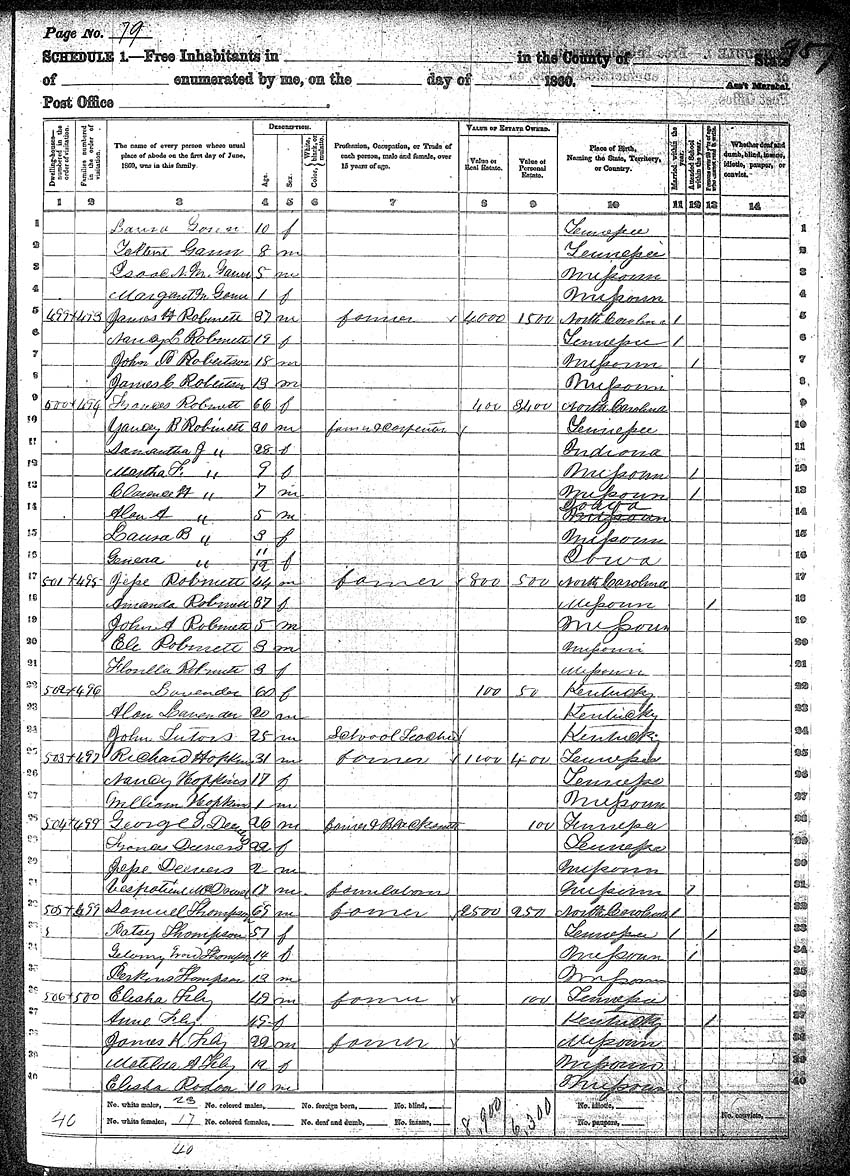 Page No. 79
SCHEDULE 1.—Free Inhabitants in in the County of State
of enumerated by me, on the day of 1860. Ass't Marshal
Post Office .
Dwelling-houses—numbered in the order of visitation. Families numbered in the order of visitation. The name of every person whose usual place of abode on the first day of June, 1860, was in this family. DESCRIPTION. Age. Sex. Color, White, black, or mulatto. Profession, Occupation, or Trade of each person, male and female, over 15 years of age. VALUE OF ESTATE OWNED. Value of Real Estate. Value of Personal Estate. Place of Birth, Naming the State, Territory, or Country. Married within the year. Attended School within the year. Whether deaf and dumb, blind, insane, idiotic, pauper, or convict.
1 2 3 4 5 6 7 8 9 10 11 12 13 14
1 Laura 10 f Tennessee 1
2 Gann 8 m Tennessee 2
3 Isaac N. M. Gann 5 m Missouri 3
4 Margaret M 1 f Missouri 4
5 499 493 James H Robinett 37 m farmer 4000 1500 North Carolina 1 5
6 Nancy C Robinett 19 f Tennessee 1 6
7 John B Robertson 18 m Missouri 1 7
8 James C Robertson 13 m Missouri 8
9 500 494 Frances Robinett 66 f 400 3400 North Carolina 9
10 Yancey B Robinett 30 m farmer & Carpenter Tennessee 10
11 Samantha J " 28 f Indiana 11
12 Martha F. " 9 f Missouri 1 12
13 Clarence H " 7 m Missouri 1 13
14 Alon A " 5 m Iowa Missouri 14
15 Laura B " 3 f Missouri 15
16 Geneva " 11/12 f Iowa 16
17 501 495 Jesse Robinett 44 m farmer 800 500 North Carolina 17
18 Amanda Robinett 37 f Missouri 1 18
19 John A Robinett 5 m Missouri 19
20 Ele Robinett 3 m Missouri 20
21 Florilla Robinett 3 f Missouri 21
22 502 496 Lavender 60 f 100 50 Kentucky 22
23 Alon Lavender 20 m Kentucky 23
24 John 25 m School Teacher Kentucky 24
25 503 497 Richard Hopkins 31 m farmer 1100 400 Tennessee 25
26 Nancy Hopkins 17 f Tennessee 26
27 William Hopkins 1 m Missouri 27
28 504 499 George Deevers 26 m farmer & Blacksmith 100 Tennessee 28
29 Frances Deevers 22 f Tennessee 29
30 Jesse Deevers 2 m Missouri 30
31 17 m farm laborer Missouri 1 31
32 505 499 Samuel Thompson 65 m farmer 2500 250 North Carolina 1 32
33 Patsy Thompson 57 f Tennessee 1 1 33
34 Thompson 14 f Missouri 1 34
35 Perkins Thompson 13 m Missouri 35
36 506 500 Elisha 49 m farmer 100 Tennessee 36
37 Anne 49 f Kentucky 1 37
38 James K 22 m farmer Missouri 38
39 Matilda A 12 f Missouri 39
40 Elisha 10 m Missouri 40
40 No. white males, 23 No. colored males, No. foreign born, No. blind, 8,900 6,300 No. idiotic,
No. white females, 17 No. colored females, No. deaf and dumb, No. insane, No. paupers, No. convicts,
40